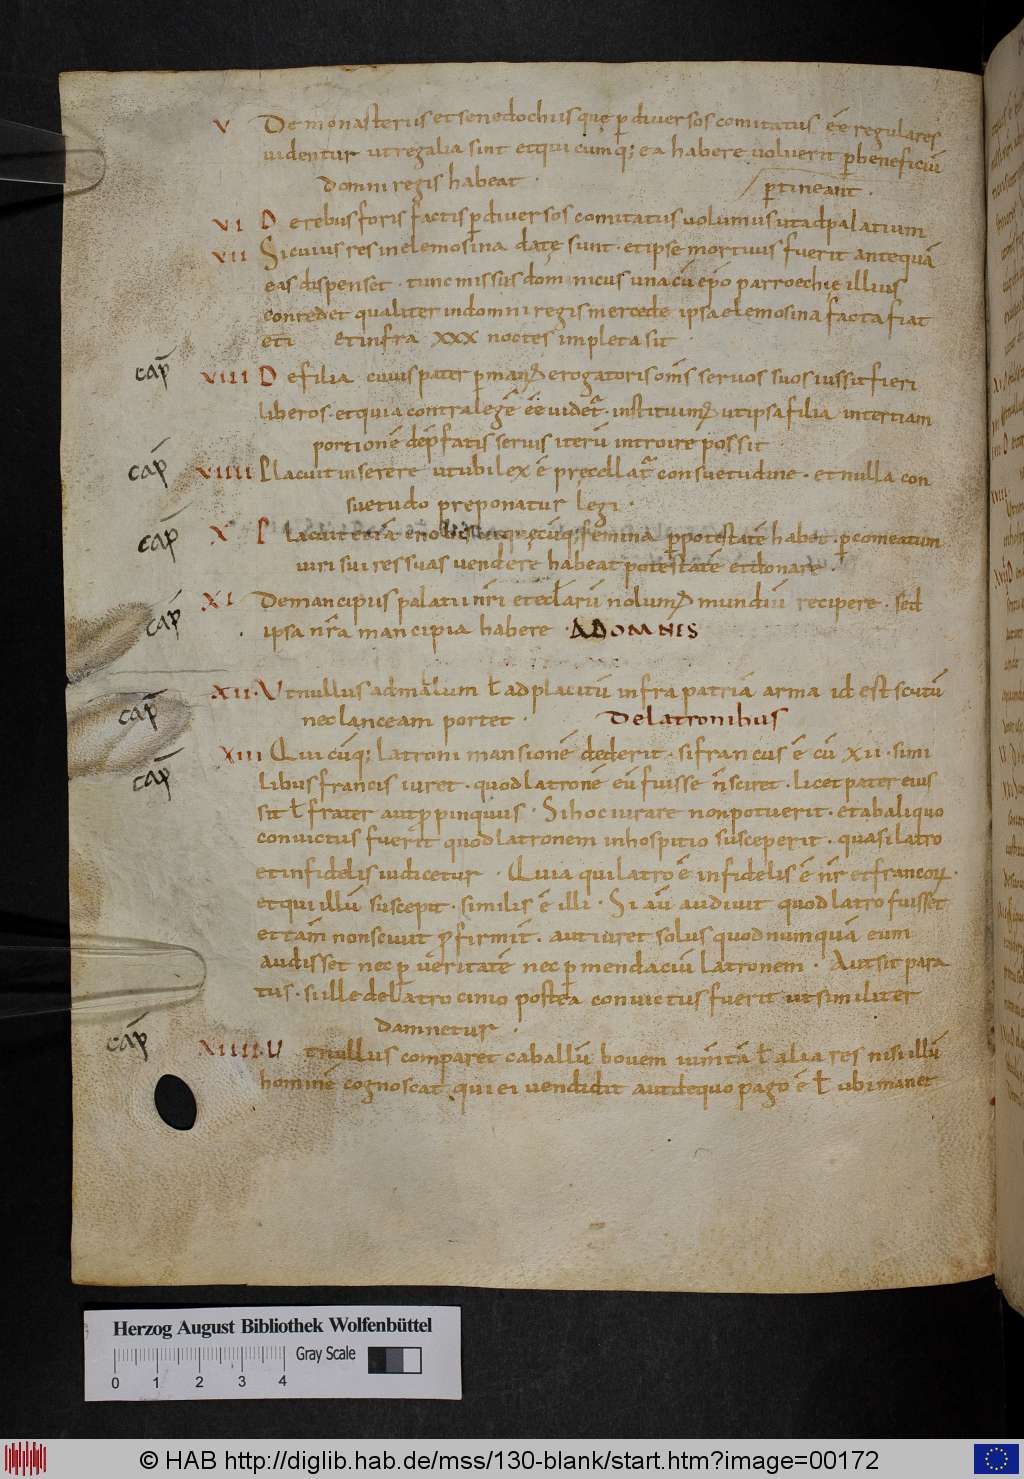 V De monasteriis et senedochiis quę p̲ diuersos comitatus ēē regulares
uidentur ut regalia sint et qui cumq; ea habere uoluerit p̲ beneficiū
domni regis habeat · p̲tineant .
VI De rebus foris factis p̲ diuersos comitatus uolumus ut ad palatium
VII Si cuius res in elemosina datę sunt · et ipse mortuus fuerit antequā
eas dispenset · tunc missus dominicus una cū ep̄o parroechię illius
conredet qualiter in domni regis mercede ipsa elemosina facta fiat
et infra XXX noctes impleta sit
cap̄ VIII De filia cuius pater p̲ manū erogatoris om̄s seruos suos iussit fieri
liberos · et quia contra legē ēē uidet᷑ · instituim᷒ ut ipsa filia in tertiam
portionē de p̄fatis seruis iterū introire possit
cap̄ VIIII Placuit inserere ut ubi lex ē precellat᷑ consuetudine · et nulla con
suetudo preponatur legi ·
cap̄ X Placuit etiā nobis et quęcūq; femina p̲ potestatē habet · p̲ comeatum
uiri sui res suas uendere habeat potestatē et donare ·
cap̄ XI De mancipiis palatii nr̄i et eccl̄arū nolum᷒ mundiū recipere · sed
ipsa nr̄a mancipia habere · AD OMNES
cap̄ XII · Ut nullus ad mallum ł ad placitū infra patriā arma id est scutū
nec lanceam portet · De latronibus
cap̄ XIII Quicūq; latroni mansionē dederit · si francus ē cū XII · simi
libus francis iuret · quod latronē eū fuisse n̄ sciret · licet pater eius
sit ł frater aut p̲pinquus · Si hoc iurare non potuerit · et ab aliquo
conuictus fuerit quod latronem in hospitio susceperit · quasi latro
et infidelis iudicetur · Quia qui latro ē infidelis ē nr̄ et francoꝝ ·
et qui illū suscepit · similis ē illi · Si aū audiuit quod latro fuisset
et tam̄ non sciuit p̲ firmit̄ . aut iuret solus quod numquā eum
audisset nec p̲ ueritatē nec p̲ mendaciū latronem · Aut sit para
tus · si ille de latrocinio postea conuictus fuerit ut similiter
damnetur ·
cap̄ XIIII · Ut nullus comparet caballū bouem iumtā ł alia res nisi illū
hominē cognoscat qui ei uendidit aut de quo pago ē ł ubi manet
Herzog August Bibliothek Wolfenbüttel
Gray Scale
0 1 2 3 4
© HAB http://diglib.hab.de/mss/130-blank/start.htm?image=00172